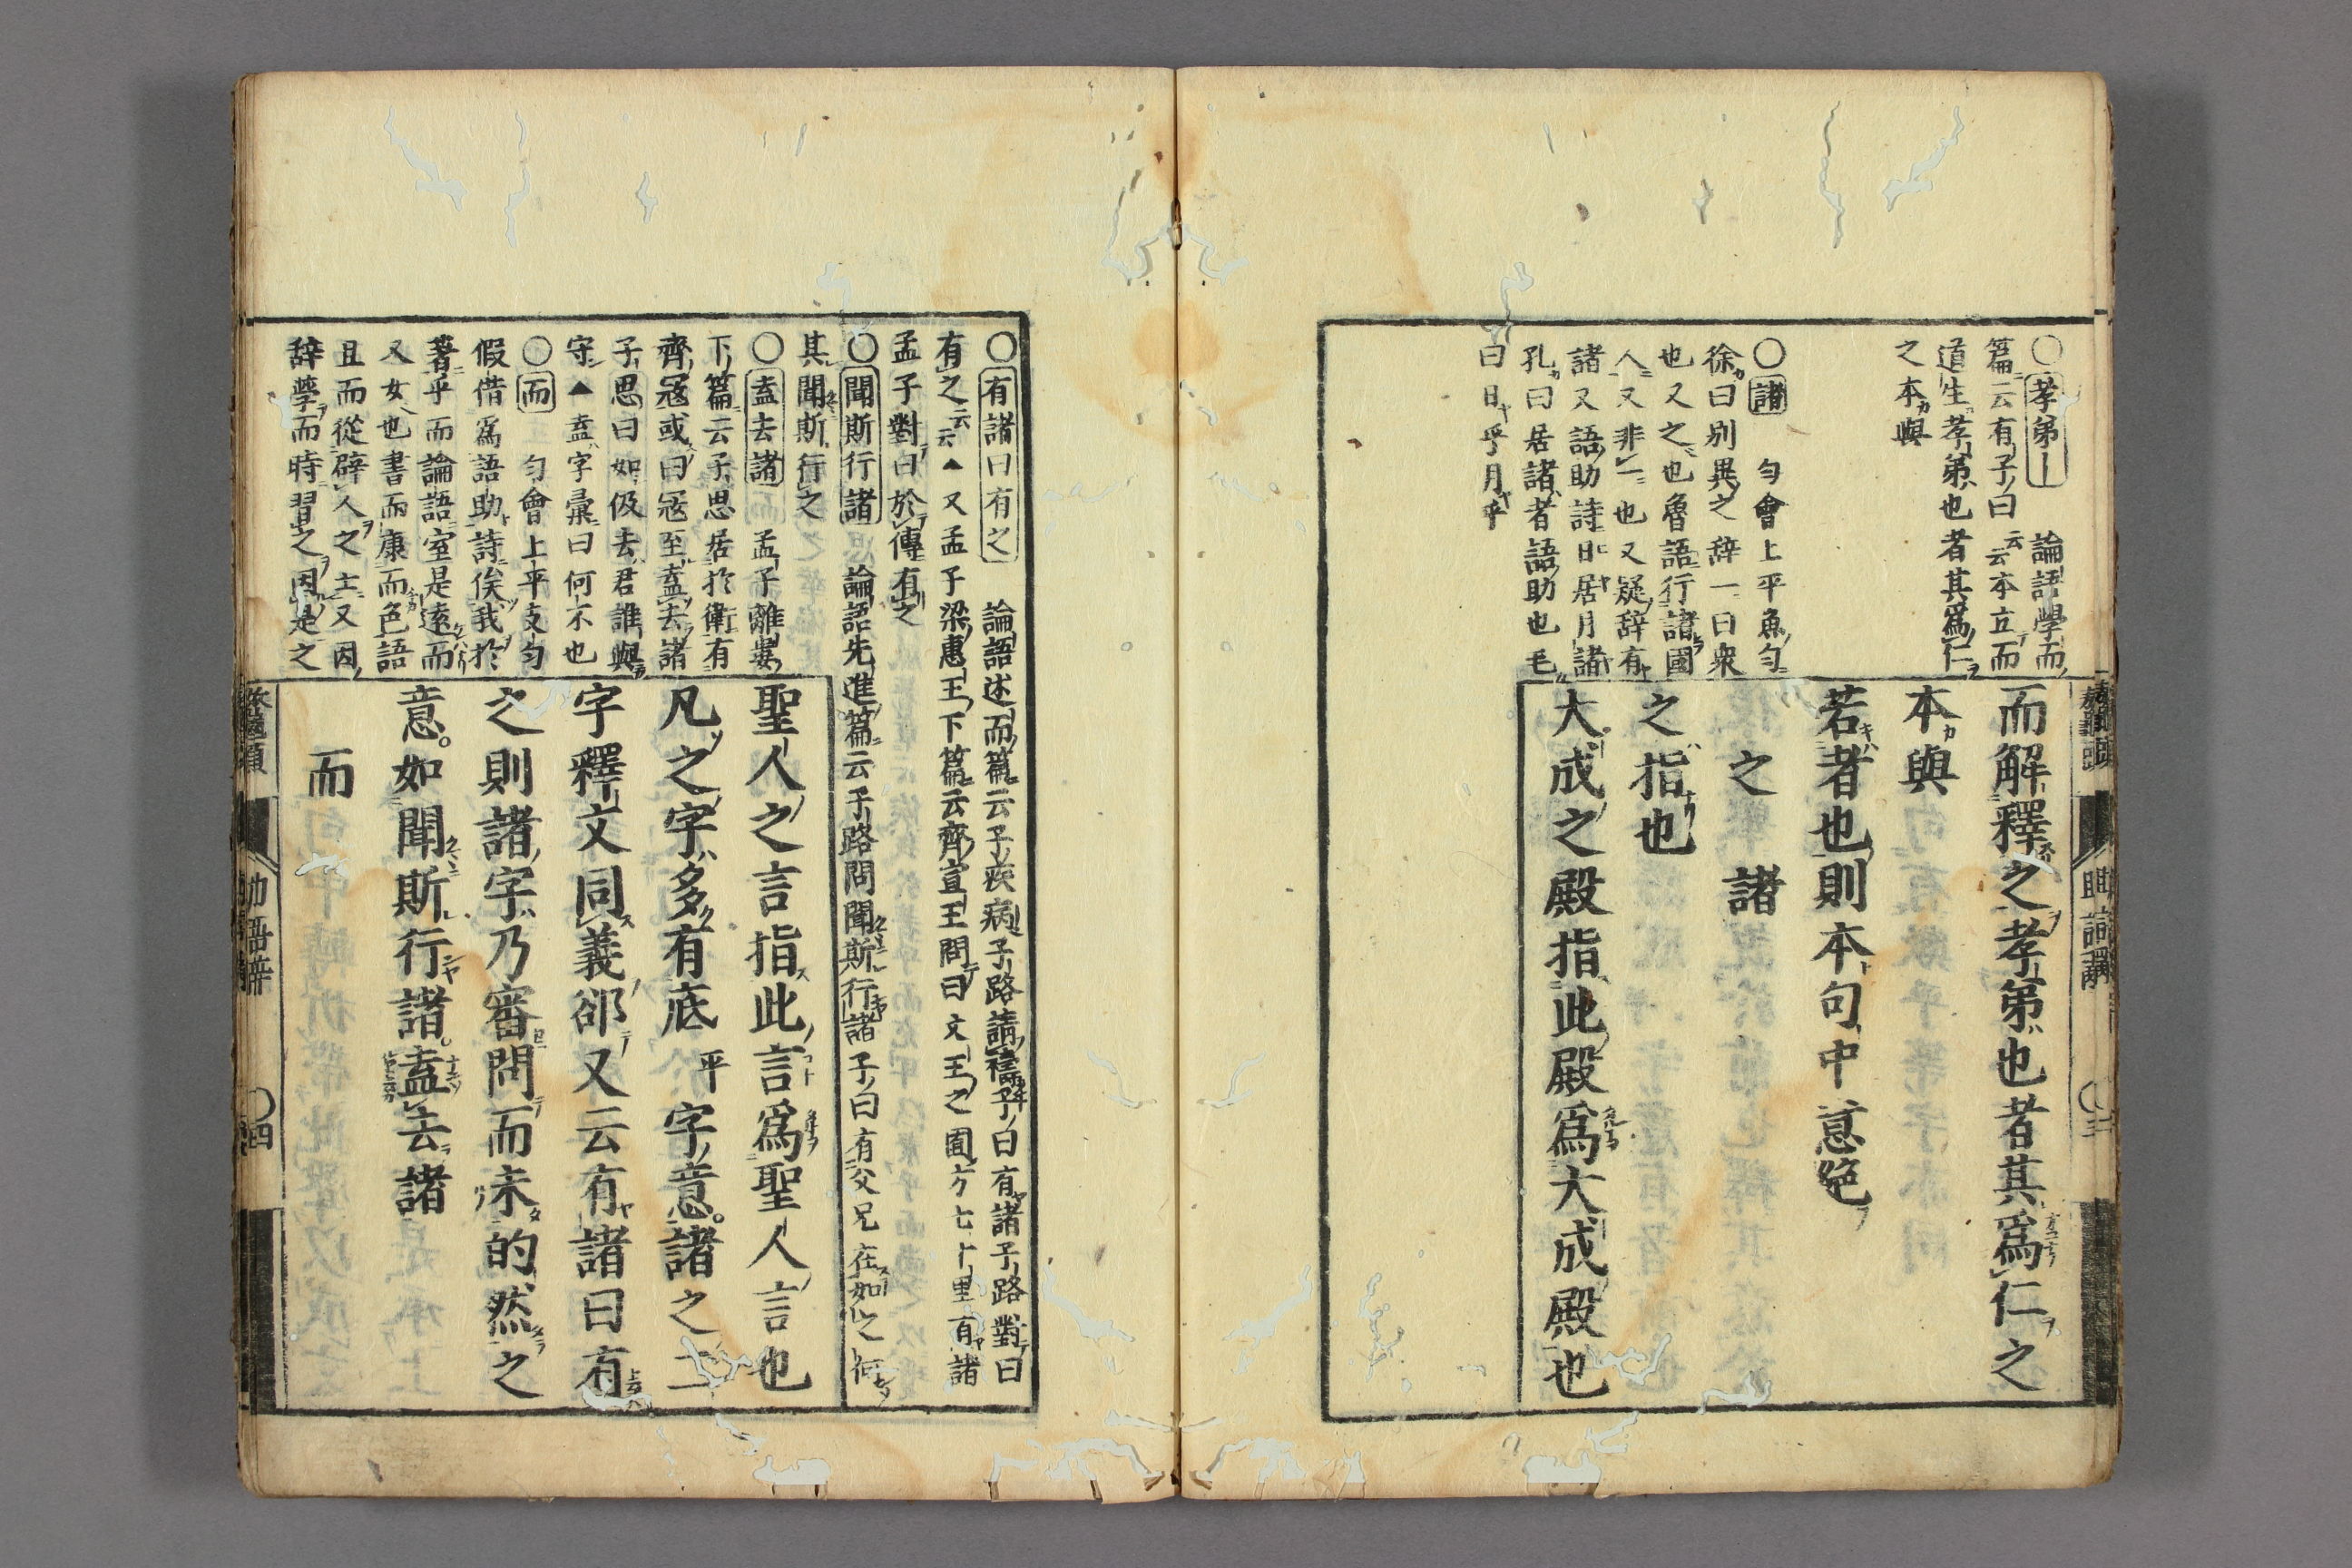 ○孝弟｜　論語學而
篇云有子曰云云本立而
道生孝弟也者其爲仁
之本與
○諸　勻會上平魚勻
徐曰別異之辞一曰衆
也又之也魯語行諸國
人又非一也又疑辞有
諸又語助詩日居月諸
孔曰居諸者語助也毛
曰日乎月乎
而解釋之孝弟也者其爲仁之
本與
若者也則本句中意絶
之　諸
之指也
大成之殿指此殿爲大成殿也
○有諸曰有之　論語述而篇云子疾病子路請禱子曰有諸子路對曰
有之云云▲又孟子梁惠王下篇云齊宣王問曰文王之囿方七十里有諸
孟子對曰於傳有之
○聞斯行諸　論語先進篇云子路問聞斯行諸子曰有父兄在如之何
其聞斯行之
○盍去諸　孟子離婁
下篇云子思居於衛有
齊寇或曰寇至盍去諸
子思曰如伋去君誰與
守▲盍字彙曰何不也
○而　勻會上平支勻
假借爲語助詩俟我於
著乎而論語室是遠而
又女也書而康而色語
且而從辟人之士又因
辞學而時習之因是之
聖人之言指此言爲聖人言也
凡之字多有底平字意。諸之二
字釋文同義郤又云有諸曰有
之則諸字乃審問而未的然之
意。如聞斯行諸。盍去諸
而
助語辞
○四